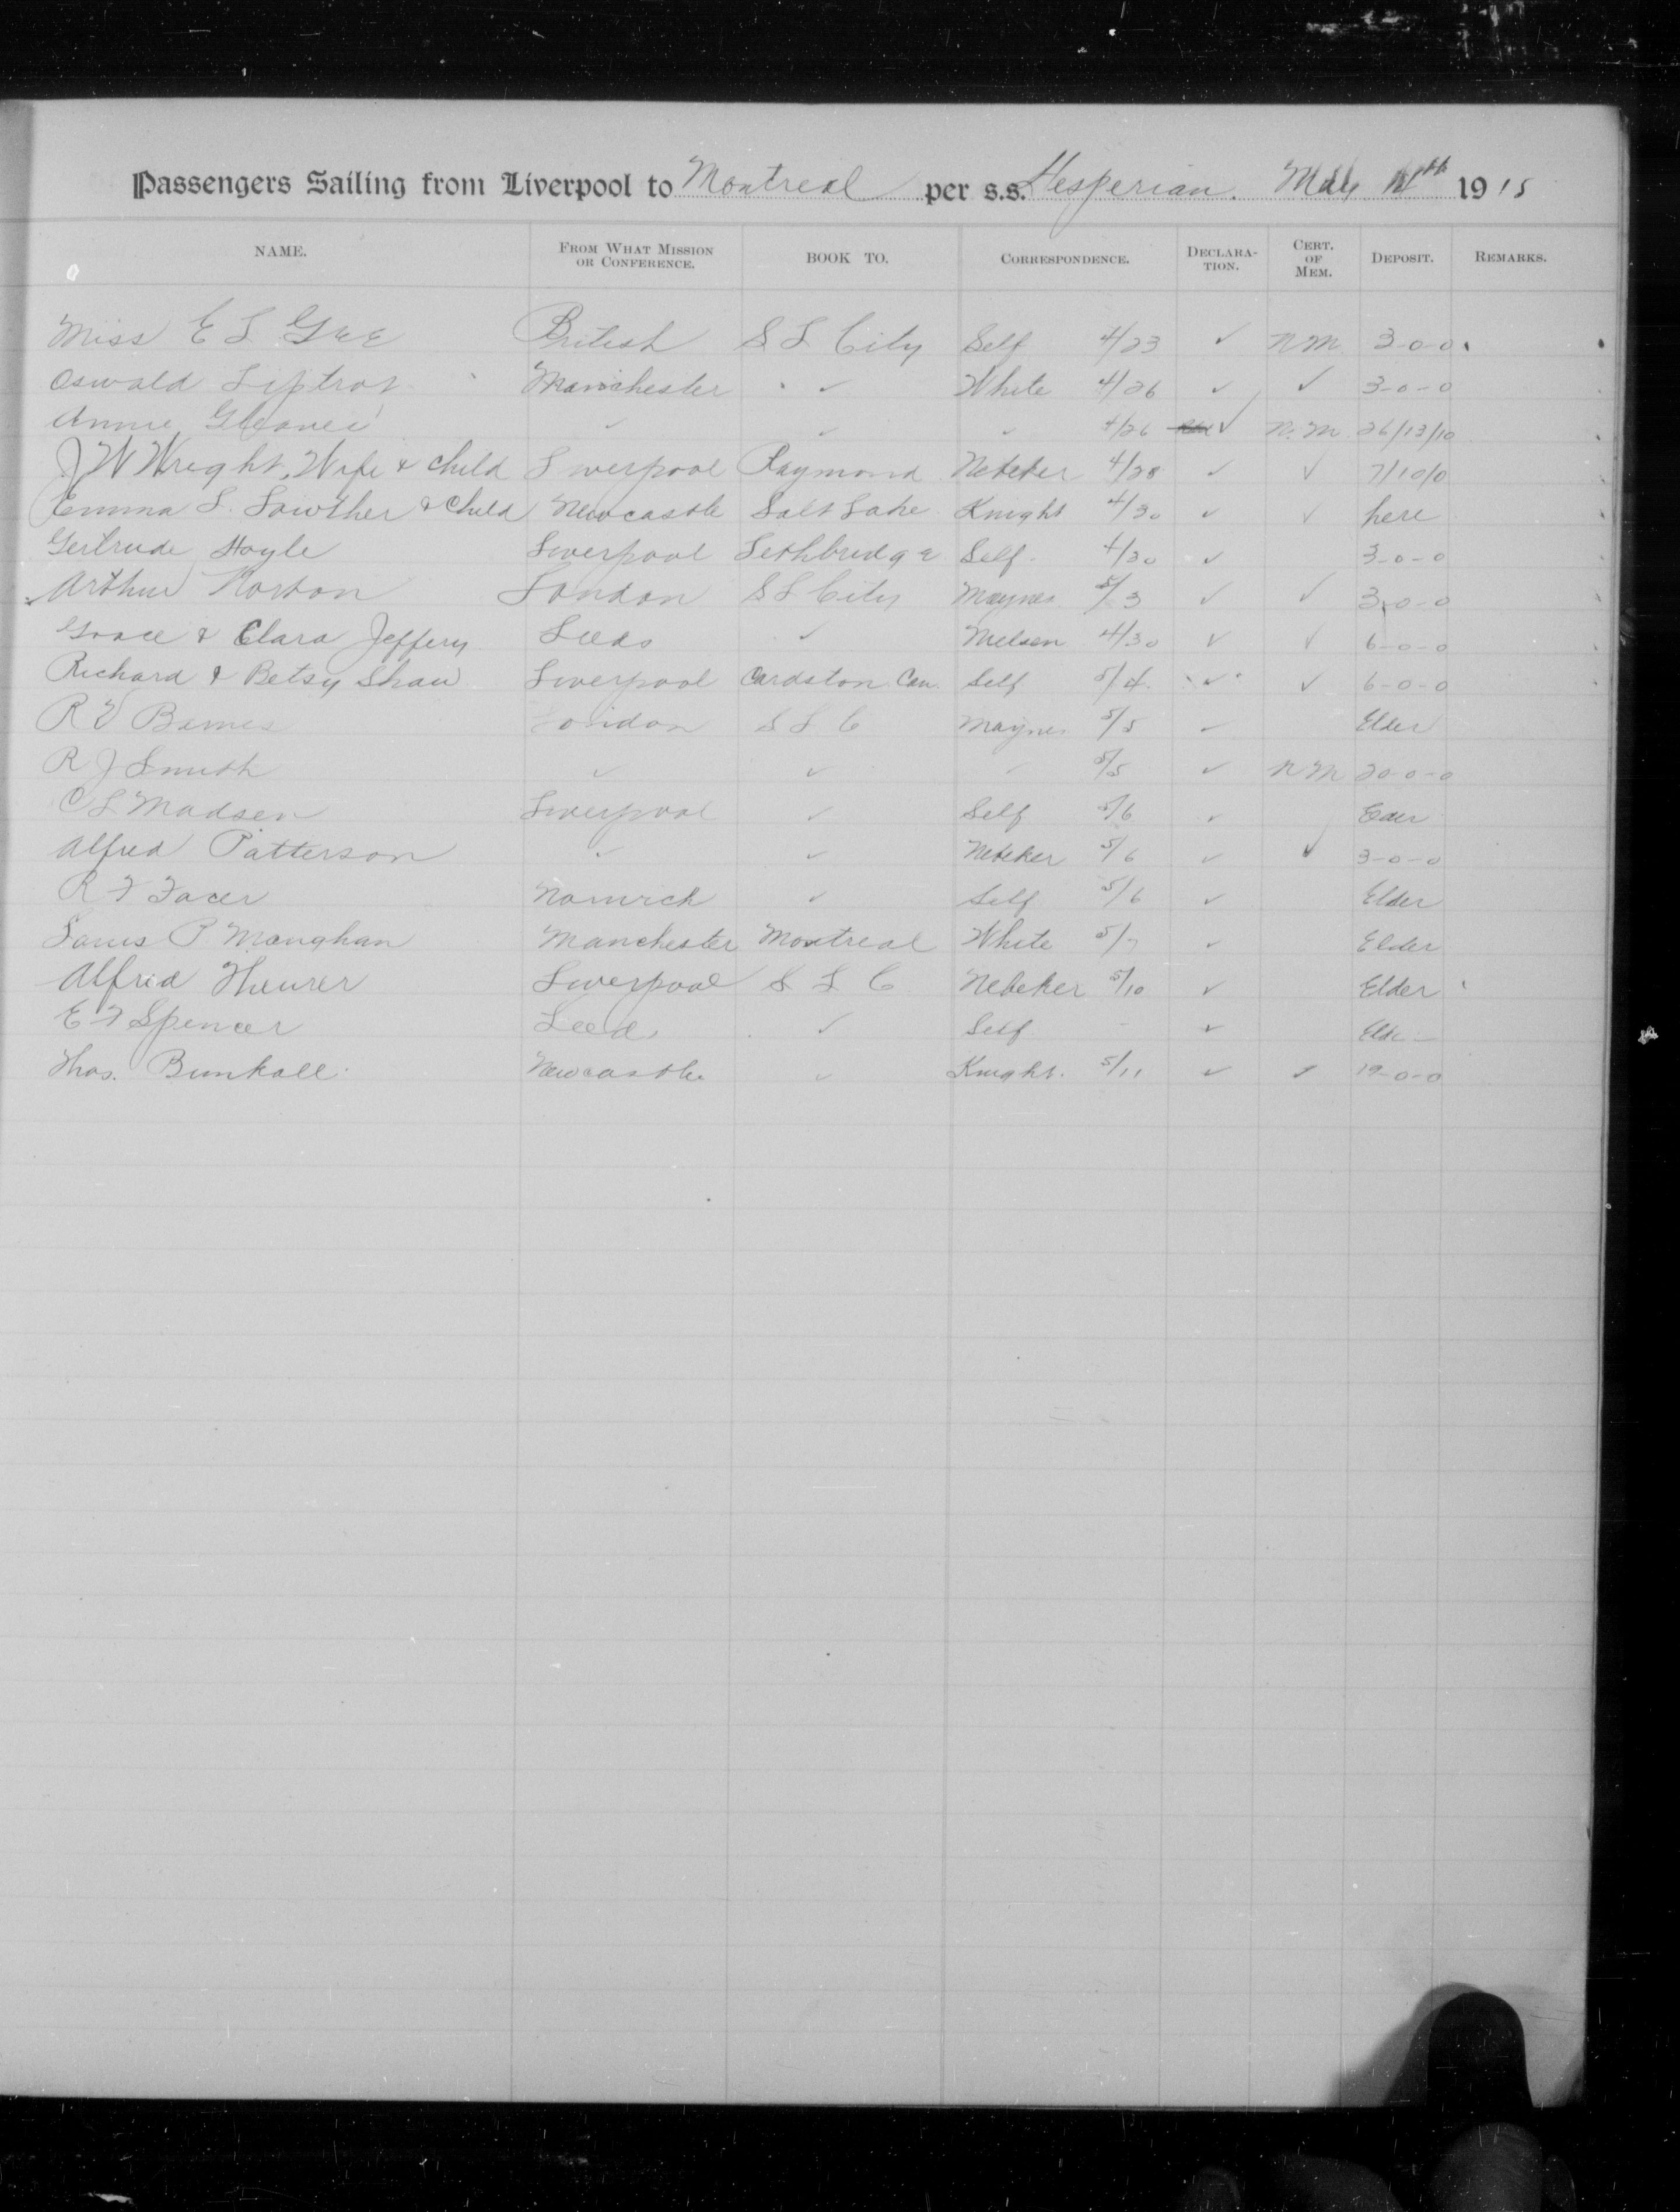 Passengers Sailing from Liverpool to Montreal per s.s. Hesperian. May 14th 1915
NAME. FROM WHAT MISSION OR CONFERENCE. BOOK TO. CORRESPONDENCE. DECLARA-TION. CERT. OF MEM. DEPOSIT. REMARKS.
Miss E L Gee British S L City Self 4/23 ✓ N M 3-0-0
Oswald Liptrot Manchester ✓ White 4/26 ✓ ✓ 3-0-0
Annie ✓ ✓ ✓ 4/26 ✓ N. M. 26/13/10
J W Wright, Wife & Child Liverpool Raymond Nebeker 4/28 ✓ ✓ 7/10/0
Emma L. Lowther & Child Newcastle Salt Lake Knight 4/30 ✓ ✓ here
Gertrude Hoyle Liverpool Lethbridge Self 4/30 ✓ 3-0-0
Arthur Norton London S L City Maynes 5/3 ✓ ✓ 3-0-0
Grace & Clara Jeffery Leeds ✓ Nielsen 4/30 ✓ ✓ 6-0-0
Richard & Betsy Shaw Liverpool Cardston Can. Self 5/4 ✓ ✓ 6-0-0
R V London S L C Maynes 5/5 ✓ Elder
R J Smith ✓ ✓ ✓ 5/5 ✓ N M 20-0-0
C L Madsen Liverpool ✓ Self 5/6 ✓ Elder
Alfred Patterson ✓ ✓ Nebeker 5/6 ✓ ✓ 3-0-0
R F Facer Norwich ✓ Self 5/6 ✓ Elder
P Maughan Manchester Montreal White 5/7 ✓ Elder
Alfred Liverpool S L C Nebeker 5/10 ✓ Elder
E F Spencer Leeds ✓ Self - ✓ Elder
Thos. Bunkall Newcastle ✓ Knight. 5/11 ✓ ✓ 19-0-0